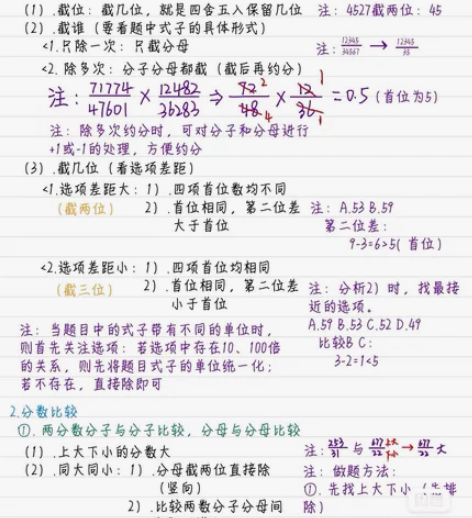 (1).截位：截几位，就是四舍五入保留几位 注：4527截两位：45
(2).截谁（要看题中式子的具体形式）
<1.只除一次：只截分母 注：12345/34567 → 12345/35
<2.除多次：分子分母都截（截后再约分）
注：71774/47601 × 12482/36283 ⇒ 72/48 2 4 × 12/36 1 1 = 0.5（首位为5）
注：除多次约分时，可对分子和分母进行
+1或-1的处理，方便约分
(3).截几位（看选项差距）
<1.选项差距大：1）.四项首位数均不同
（截两位） 2）.首位相同，第二位差 注：A.53 B.59
大于首位 第二位差：
9-3=6>5（首位）
<2.选项差距小：1）.四项首位均相同
（截三位） 2）.首位相同，第二位差 注：分析2）时，找最接
小于首位 近的选项。
A.59 B.53 C.52 D.49
注：当题目中的式子带有不同的单位时， 比较BC：
则首先关注选项：若选项中存在10、100倍 3-2=1<5
的关系，则先将题目式子的单位统一化；
若不存在，直接除即可
2.分数比较
①.两分数分子与分子比较，分母与分母比较
(1).上大下小的分数大 注：253/31 与 677/22 上大 下小 → 677/22 大
(2).同大同小：1）.分母截两位直接除 注：做题方法：
（竖向） ①.先找上大下小（先排
2）.比较两数分子分母间 除）